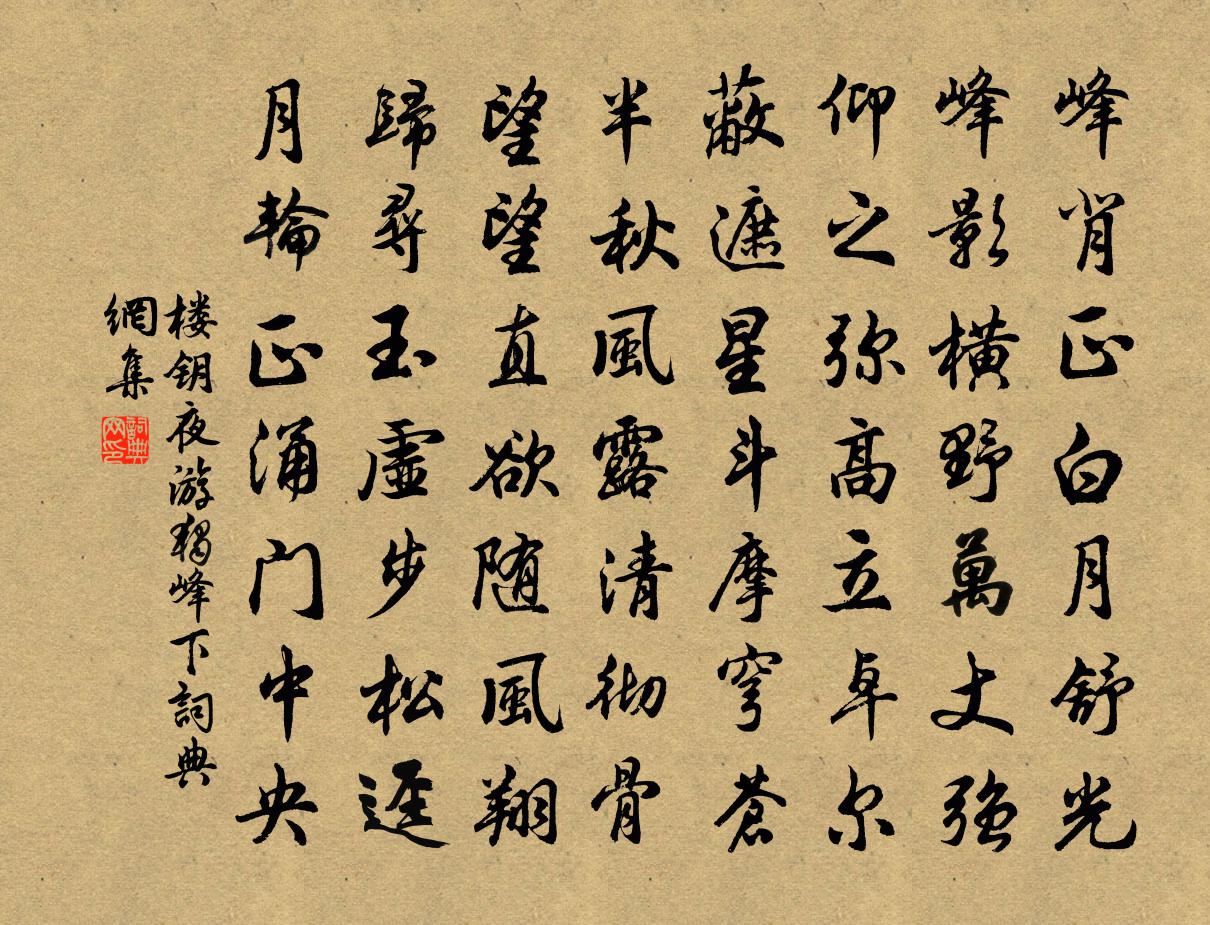 峰肖正白月舒光
峰影橫野萬丈強
仰之弥高立卓尔
蔽遮星斗摩穹蒼
半秋風露清彻骨
望望直欲随風翔
歸尋玉虛步松逕
月輪正涌门中央
楼钥夜游獨峰下詞典
網集
詞典
网印